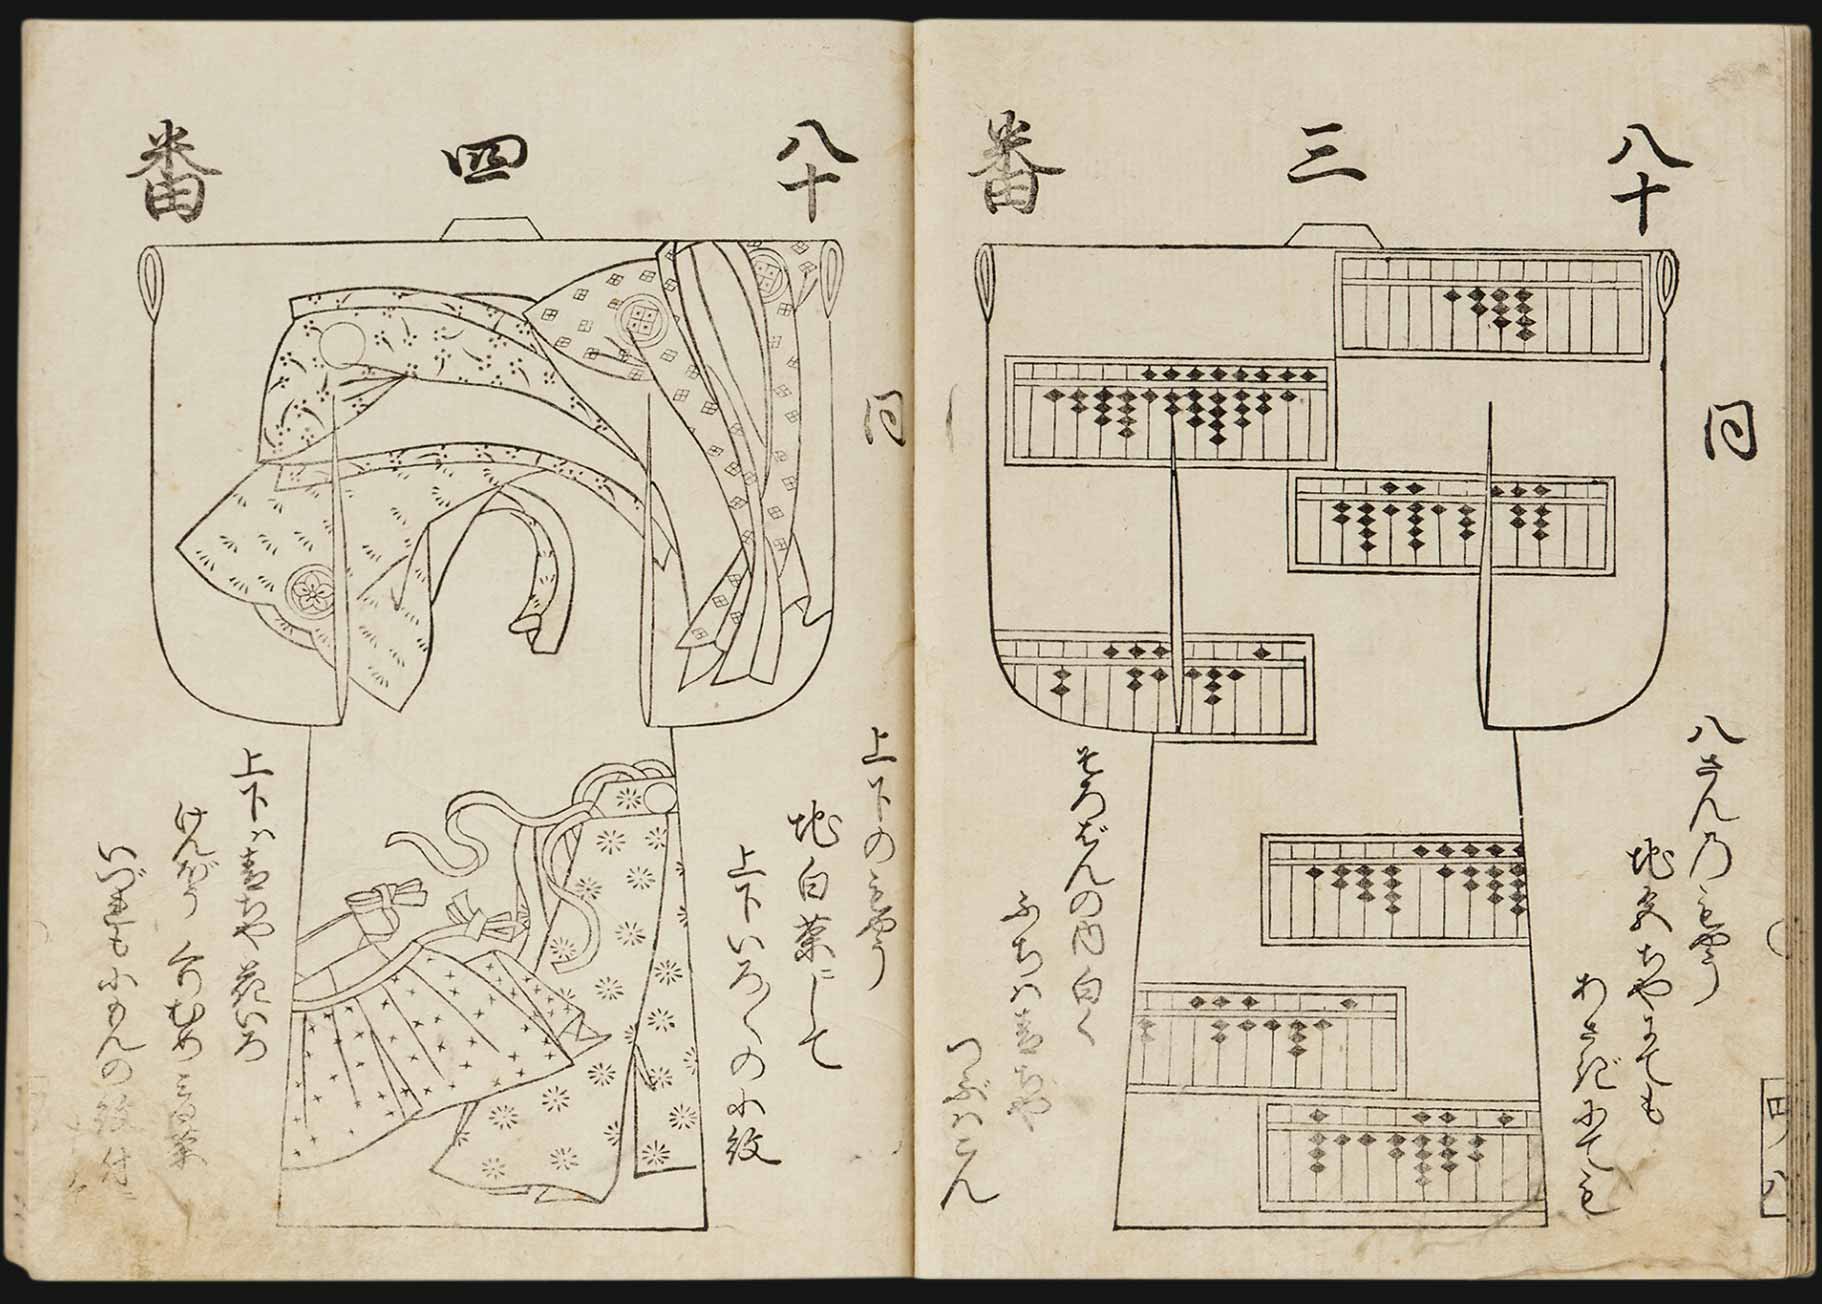 八十三番
同
八さんのもやう
地気ちやにても
あさぎにても
そろばんの内白く
ふちハ青ちや
つぶハこん
八十四番
同
上下のもやう
地白茶にして
上下いろ〱の小紋
上下ハ青ちや花いろ
けんぼう
いづれも小もんの紋付